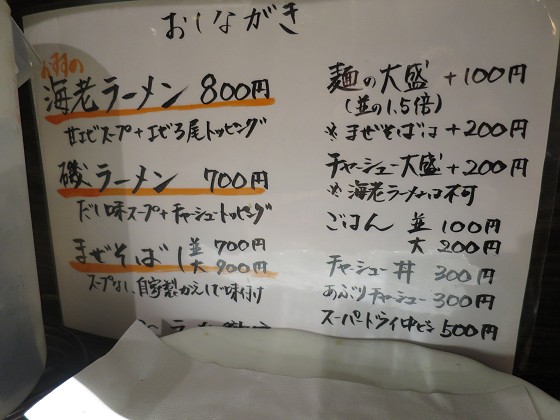 おしながき
海老ラーメン 800円
甘エビスープ+エビ3尾トッピング
磯ラーメン 700円
だし味スープ+チャーシュートッピング
まぜそば 並 700円
大 900円
スープなし、自家製カエシで味付け
麺の大盛 +100円
(並の1.5倍)
※まぜそばは+200円
チャーシュー大盛+200円
※海老ラーメンは不可
ごはん 並 100円
大 200円
チャーシュー丼 300円
あぶりチャーシュー300円
スーパードライ中ビン 500円